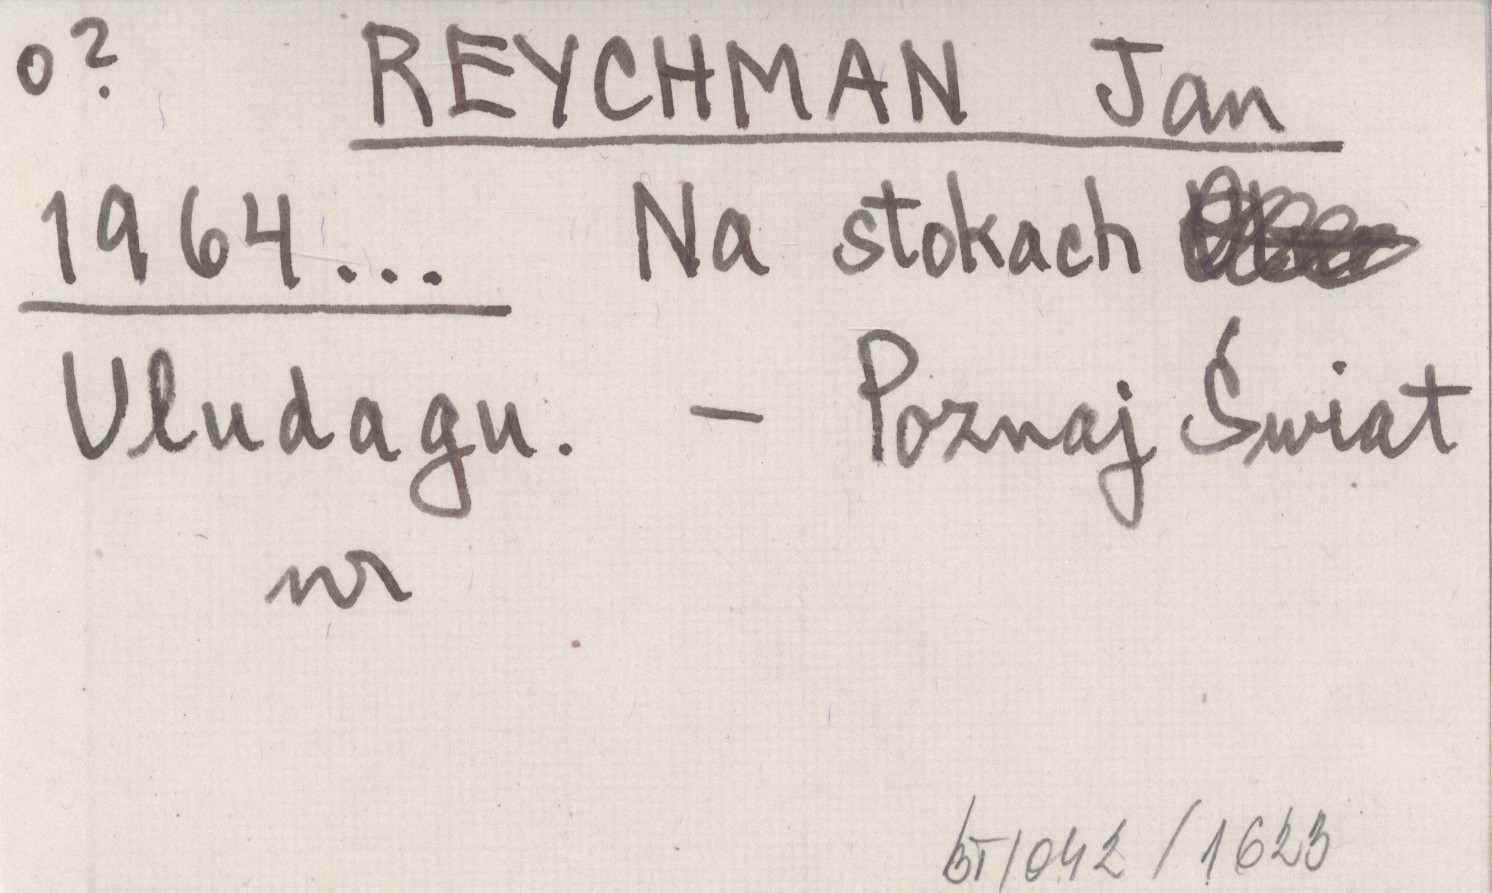 o? REYCHMAN Jan
1964... Na stokach
Uludagu. - Poznaj Świat
nr
BT/042/1623